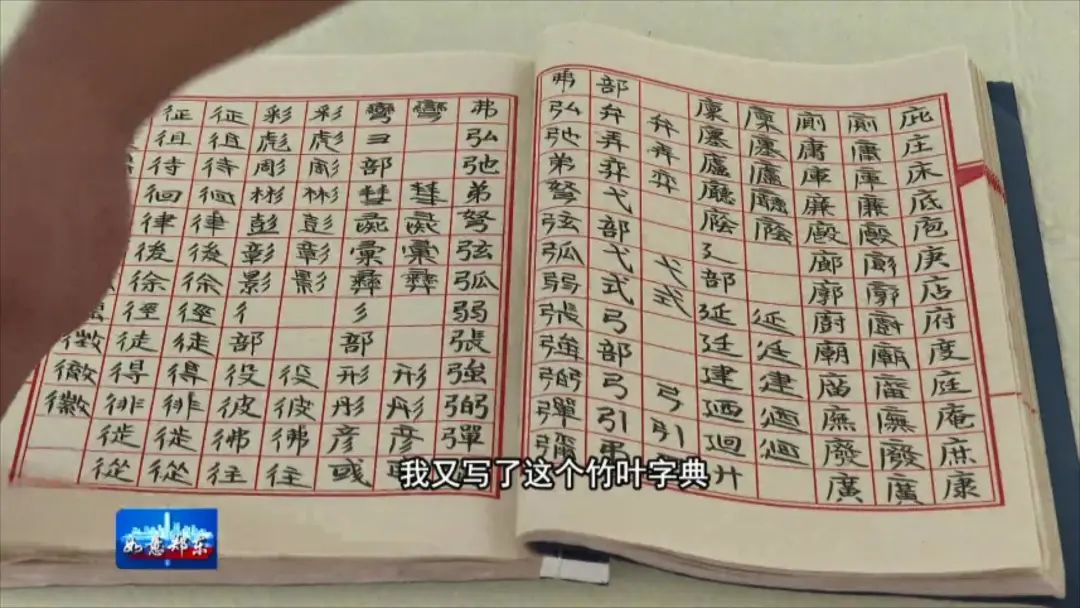 庇庄床底庖庚店府度庭庵庶康
廁庸庫廉廄廊廓廚廟廡廢廣
廁庸庫廉廄廊廓廚廟廡廢廣
廩廛廬廳廕延廷建廼廻
廩廛廬廳廕廴部延廷建廼廻廾
弁弄弈弋式弓引
部弁弄弈弋部弋式弓部弓引弔
弗弘弛弟弩弦弧弱張強弼彈彌
弗弘弛弟弩弦弧弱張強弼彈
彎彗彘彙彝形彤彥
彎彐部彗彘彙彝彡部形彤彥彧
彩彪彫彬彭彰影役彼彿往
彩彪彫彬彭彰影彳部役彼彿往
征徂待徊律後徐徑徒得徘徙從
征徂待徊律後徐徑徒得徘徙從
徹徽
我又写了这个竹叶字典
如意郑东